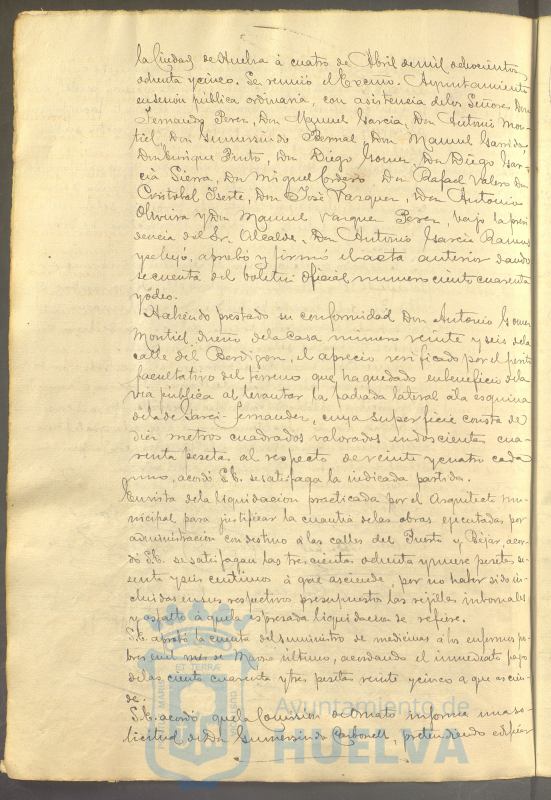 la Ciudad de Huelva á cuatro de Abril de mil ochocientos
ochenta y cinco. Se reunió el Excmo. Ayuntamiento
en sesión pública ordinaria, con asistencia de los Señores Don
Fernando Perez, Don Manuel Garcia, Don Antonio Mon-
tiel, Don Gumersindo Bernal, Don Manuel Garrido
Don Enrique Pinto, Don Diego Gomez, Don Diego Gar-
cia Sierra, Don Miguel Cordero Don Rafael Valero Don
Cristobal Iserte, Don José Vazquez, Don Antonio
Oliveira y Don Manuel Vazquez Perez, bajo la presi
dencia del Sr. Alcalde, Don Antonio Garcia Ramos
y se leyó, aprobó y firmó el acta anterior dando
se cuenta del boletin oficial numero ciento cuarenta
y ocho.
Habiendo prestado su conformidad Don Antonio Gomez
Montiel dueño de la casa numero veinte y seis de la
calle del Berdigon, el aprecio verificado por el perito
facultativo del terreno que ha quedado en beneficio de la
via publica al levantar la fachada lateral á la esquina
de la de Garci-Fernandez, cuya superficie consta de
diez metros cuadrados valorados en doscientas cua-
renta pesetas al respecto de veinte y cuatro cada
uno, acordó S.E. se satisfaga la indicada partida.
En vista de la liquidacion practicada por el Arquitecto mu-
nicipal para justificar la cuantia de las obras ejecutadas por
administracion con destino á las calles del Puerto y Béjar acor-
dó S.E. se satisfagan las trescientas ochenta y nueve pesetas se-
senta y seis centimos á que asciende, por no haber sido in-
cluidas en sus respectivos presupuestos las rejillas
y asfalto á que la expresada liquidacion se refiere.
S.E. aprobó la cuenta del suministro de medicinas á los enfermos po-
bres en el mes de Marzo último, acordando el inmediato pago
de las ciento cuarenta y tres pesetas veinte y cinco a que ascien-
de.
S.E. acordó que la Comision de Ornato informe una so-
licitud de Dn Gumersindo Carbonell, pretendiendo edificar
Ayuntamiento de
HUELVA